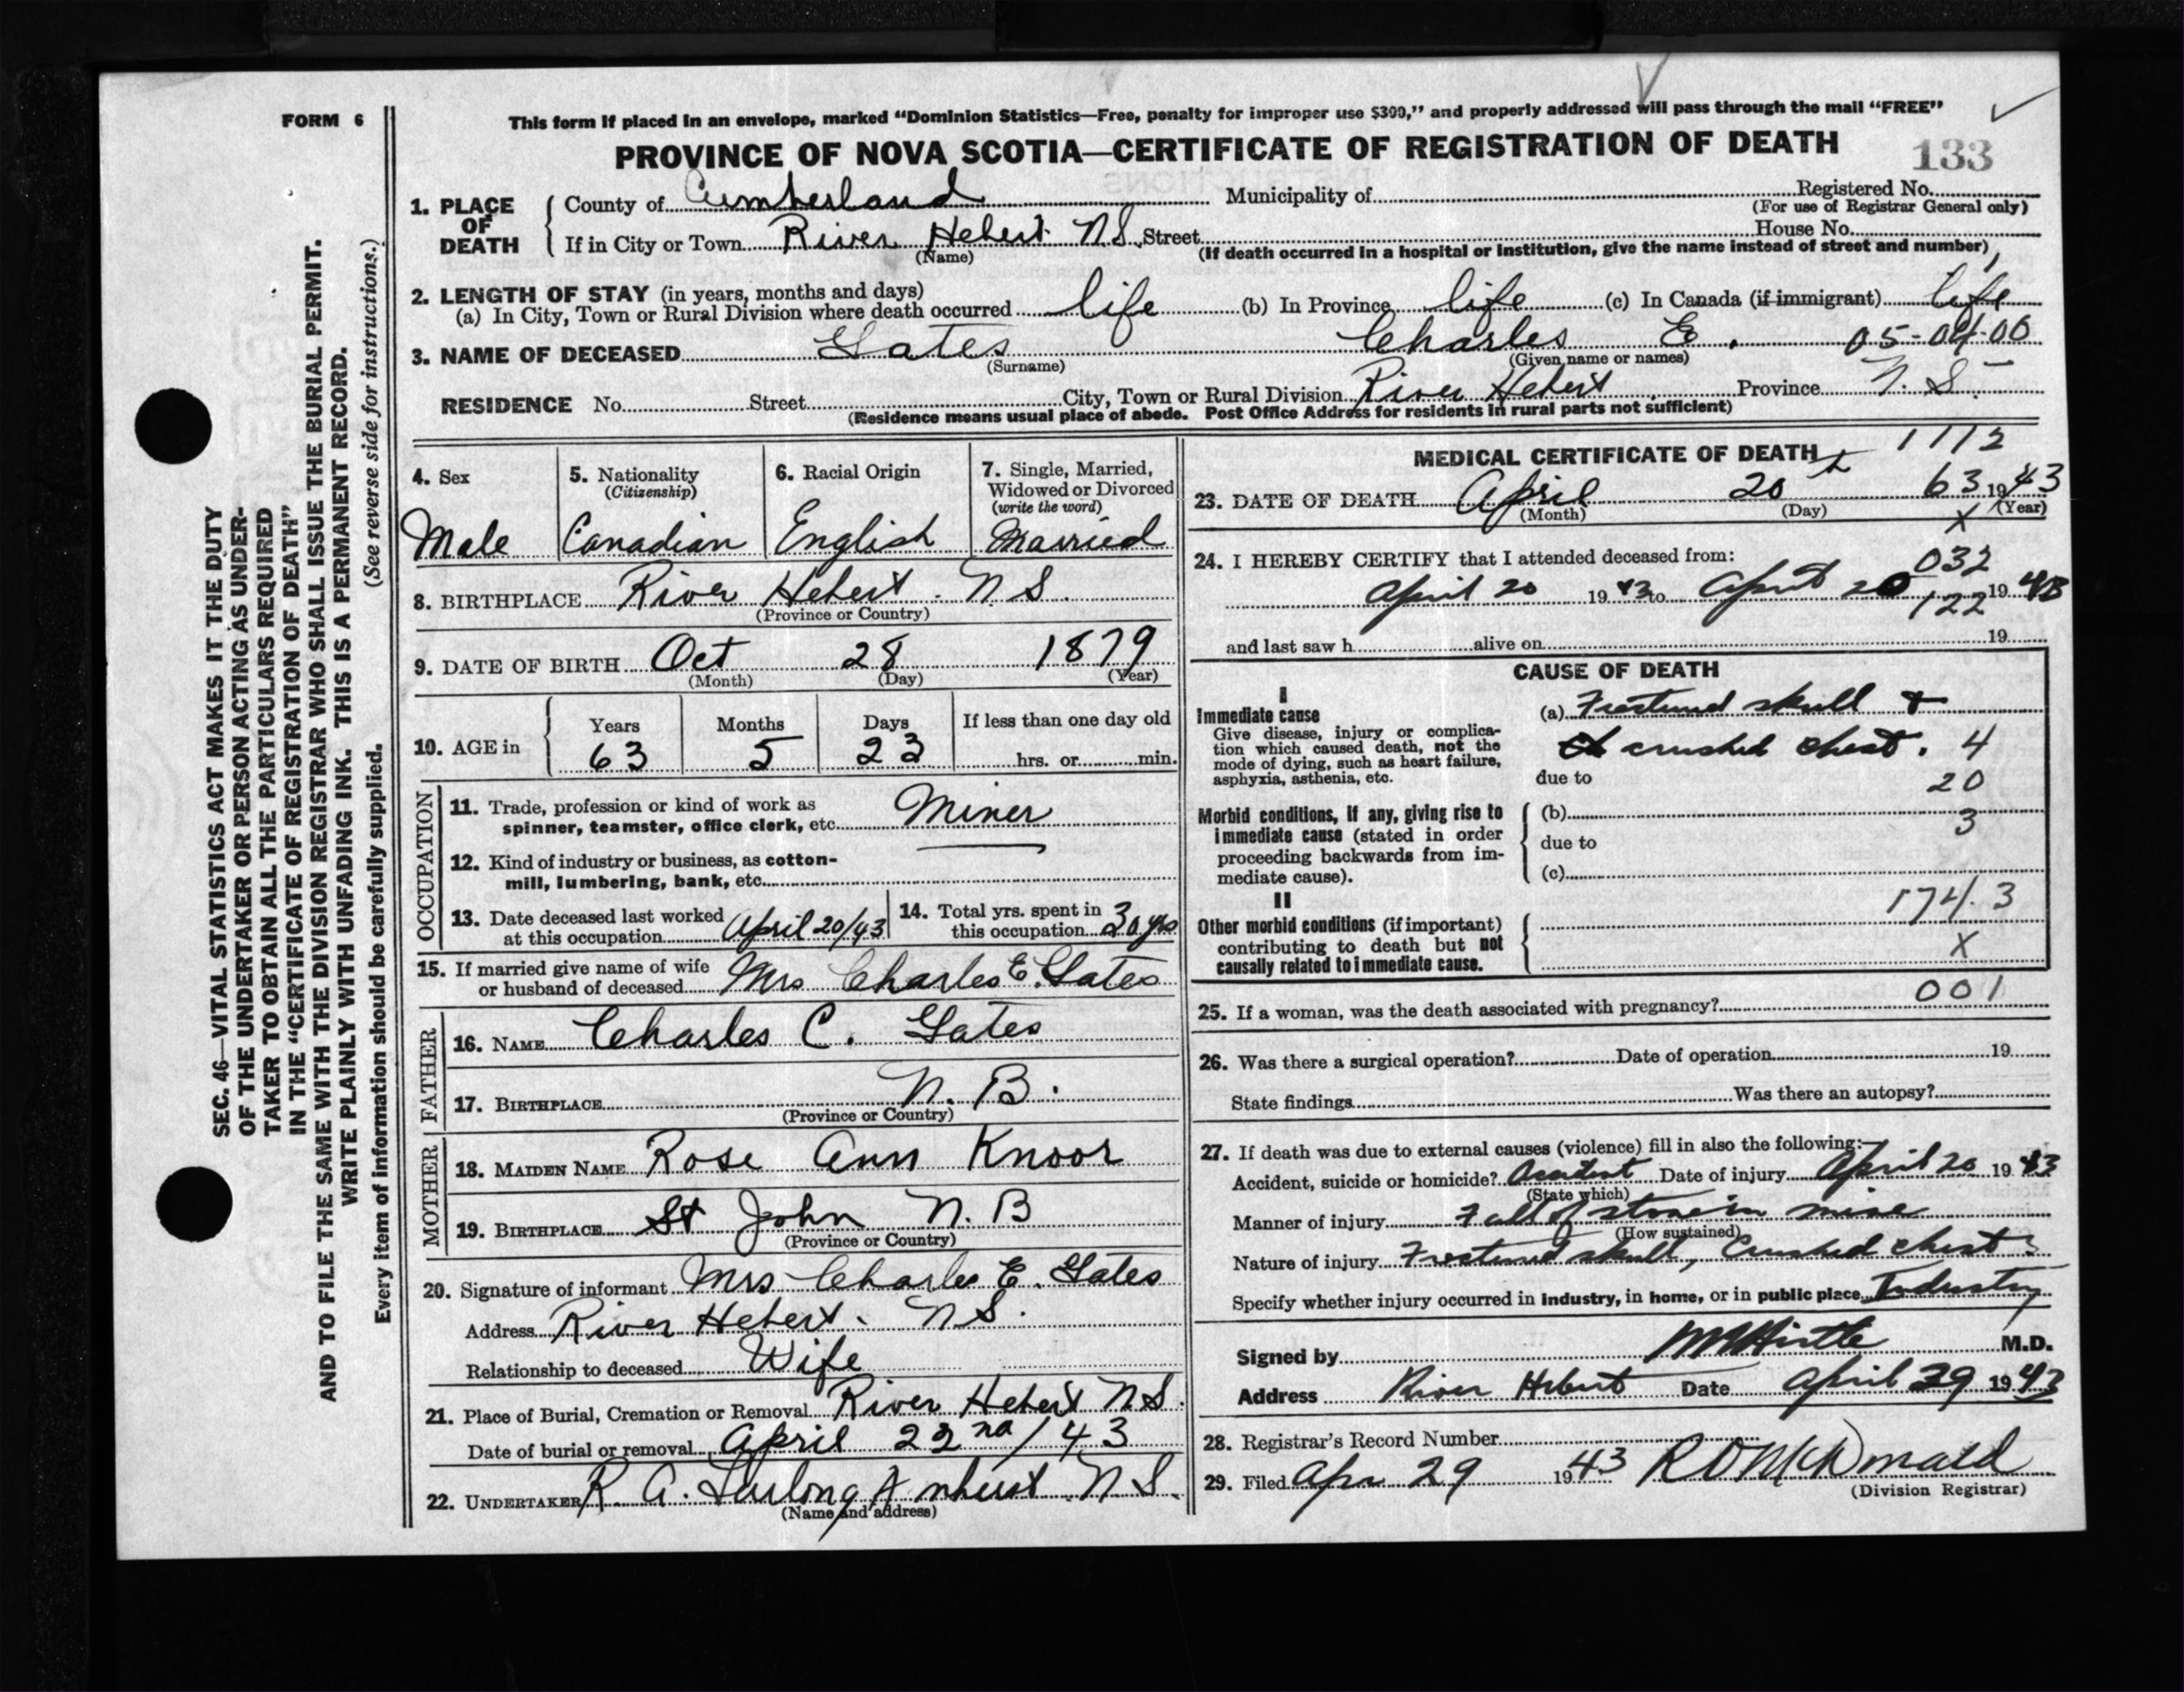 FORM 6
This form if placed in an envelope, marked “Dominion Statistics—Free, penalty for improper use $300,” and properly addressed will pass through the mail “FREE”
PROVINCE OF NOVA SCOTIA—CERTIFICATE OF REGISTRATION OF DEATH
133
1. PLACE OF DEATH
County of Cumberland Municipality of Registered No.
(For use of Registrar General only)
If in City or Town River Hebert N S. Street House No.
(Name) (If death occurred in a hospital or institution, give the name instead of street and number)
2. LENGTH OF STAY (in years, months and days)
(a) In City, Town or Rural Division where death occurred life (b) In Province life (c) In Canada (if immigrant) life
3. NAME OF DECEASED Gates Charles E. 05-04-06
(Surname) (Given name or names)
RESIDENCE No. Street City, Town or Rural Division River Hebert Province N. S.
(Residence means usual place of abode. Post Office Address for residents in rural parts not sufficient)
SEC. 46—VITAL STATISTICS ACT MAKES IT THE DUTY
OF THE UNDERTAKER OR PERSON ACTING AS UNDER-
TAKER TO OBTAIN ALL THE PARTICULARS REQUIRED
IN THE “CERTIFICATE OF REGISTRATION OF DEATH”
AND TO FILE THE SAME WITH THE DIVISION REGISTRAR WHO SHALL ISSUE THE BURIAL PERMIT.
WRITE PLAINLY WITH UNFADING INK. THIS IS A PERMANENT RECORD.
Every item of information should be carefully supplied. (See reverse side for instructions.)
4. Sex
Male
5. Nationality
(Citizenship)
Canadian
6. Racial Origin
English
7. Single, Married,
Widowed or Divorced
(write the word)
Married
8. BIRTHPLACE River Hebert. N S.
(Province or Country)
9. DATE OF BIRTH Oct 28 1879
(Month) (Day) (Year)
10. AGE in
Years Months Days If less than one day old
63 5 23 hrs. or min.
OCCUPATION
11. Trade, profession or kind of work as
spinner, teamster, office clerk, etc. Miner
12. Kind of industry or business, as cotton-
mill, lumbering, bank, etc.
13. Date deceased last worked
at this occupation April 20/43
14. Total yrs. spent in
this occupation 30 yrs
15. If married give name of wife
or husband of deceased Mrs Charles E. Gates
FATHER
16. NAME Charles C. Gates
17. BIRTHPLACE N. B.
(Province or Country)
MOTHER
18. MAIDEN NAME Rose Ann Knoor
19. BIRTHPLACE St John N. B
(Province or Country)
20. Signature of informant Mrs Charles E. Gates
Address River Hebert. N S.
Relationship to deceased Wife
21. Place of Burial, Cremation or Removal River Hebert N S.
Date of burial or removal April 22nd / 43
22. UNDERTAKER R. A. Furlong Amherst N S.
(Name and address)
MEDICAL CERTIFICATE OF DEATH 1112
23. DATE OF DEATH April 20th 63 1943
(Month) (Day) (Year)
X
24. I HEREBY CERTIFY that I attended deceased from: 032
April 20 1943 to April 20 1943
122
and last saw h alive on 19
CAUSE OF DEATH
I
Immediate cause
Give disease, injury or complica-
tion which caused death, not the
mode of dying, such as heart failure,
asphyxia, asthenia, etc.
(a) Fractured skull &
crushed chest. 4
due to 20
Morbid conditions, if any, giving rise to
immediate cause (stated in order
proceeding backwards from im-
mediate cause).
(b) 3
due to
(c)
II
Other morbid conditions (if important)
contributing to death but not
causally related to immediate cause.
174.3
X
25. If a woman, was the death associated with pregnancy? 001
26. Was there a surgical operation? Date of operation 19
State findings Was there an autopsy?
27. If death was due to external causes (violence) fill in also the following:—
Accident, suicide or homicide? Accident Date of injury April 20 1943
(State which)
Manner of injury Fall of stone in mine
(How sustained)
Nature of injury Fractured skull, Crushed chest
Specify whether injury occurred in industry, in home, or in public place Industry
Signed by Hirtle M.D.
Address River Hebert Date April 29 1943
28. Registrar's Record Number
29. Filed Apr 29 1943 R O McDonald
(Division Registrar)